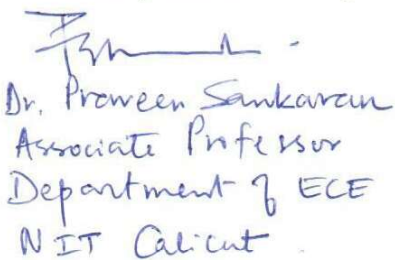 Dr. Praveen Sankaran
Associate Professor
Department of ECE
NIT Calicut.